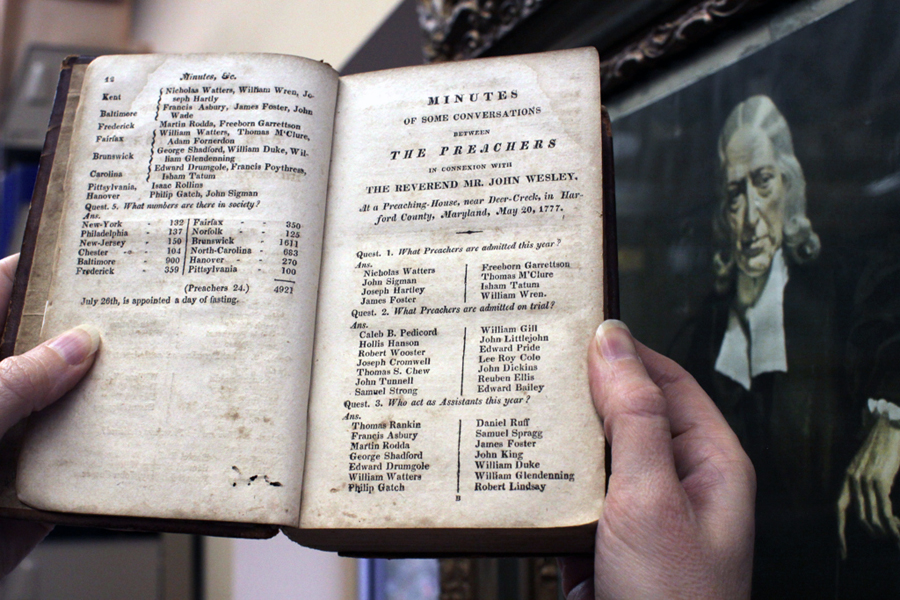 12 Minutes, &c.
Kent Nicholas Watters, William Wren, Jo-
seph Hartly
Baltimore Francis Asbury, James Foster, John
Wade
Frederick Martin Rodda, Freeborn Garrettson
Fairfax William Watters, Thomas M'Clure,
Adam Fornerdon
Brunswick George Shadford, William Duke, Wil-
liam Glendenning
Carolina Edward Drumgole, Francis Poythress,
Isham Tatum
Pittsylvania, Isaac Rollins
Hanover Philip Gatch, John Sigman
Quest. 5. What numbers are there in society?
Ans.
New-York - 132 Fairfax - 350
Philadelphia - 137 Norfolk - - 125
New-Jersey - 150 Brunswick - 1611
Chester - - 104 North-Carolina - 683
Baltimore - 900 Hanover - - 270
Frederick - 359 Pittsylvania - 100
(Preachers 24.) 4921
July 26th, is appointed a day of fasting.
MINUTES
OF SOME CONVERSATIONS
BETWEEN
THE PREACHERS
IN CONNEXION WITH
THE REVEREND MR. JOHN WESLEY,
At a Preaching-House, near Deer-Creek, in Har-
ford County, Maryland, May 20, 1777.
Quest. 1. What Preachers are admitted this year?
Ans.
Nicholas Watters Freeborn Garrettson
John Sigman Thomas M'Clure
Joseph Hartley Isham Tatum
James Foster William Wren.
Quest. 2. What Preachers are admitted on trial?
Ans.
Caleb B. Pedicord William Gill
Hollis Hanson John Littlejohn
Robert Wooster Edward Pride
Joseph Cromwell Lee Roy Cole
Thomas S. Chew John Dickins
John Tunnell Reuben Ellis
Samuel Strong Edward Bailey
Quest. 3. Who act as Assistants this year?
Ans.
Thomas Rankin Daniel Ruff
Francis Asbury Samuel Spragg
Martin Rodda James Foster
George Shadford John King
Edward Drumgole William Duke
William Watters William Glendenning
Philip Gatch Robert Lindsay
B